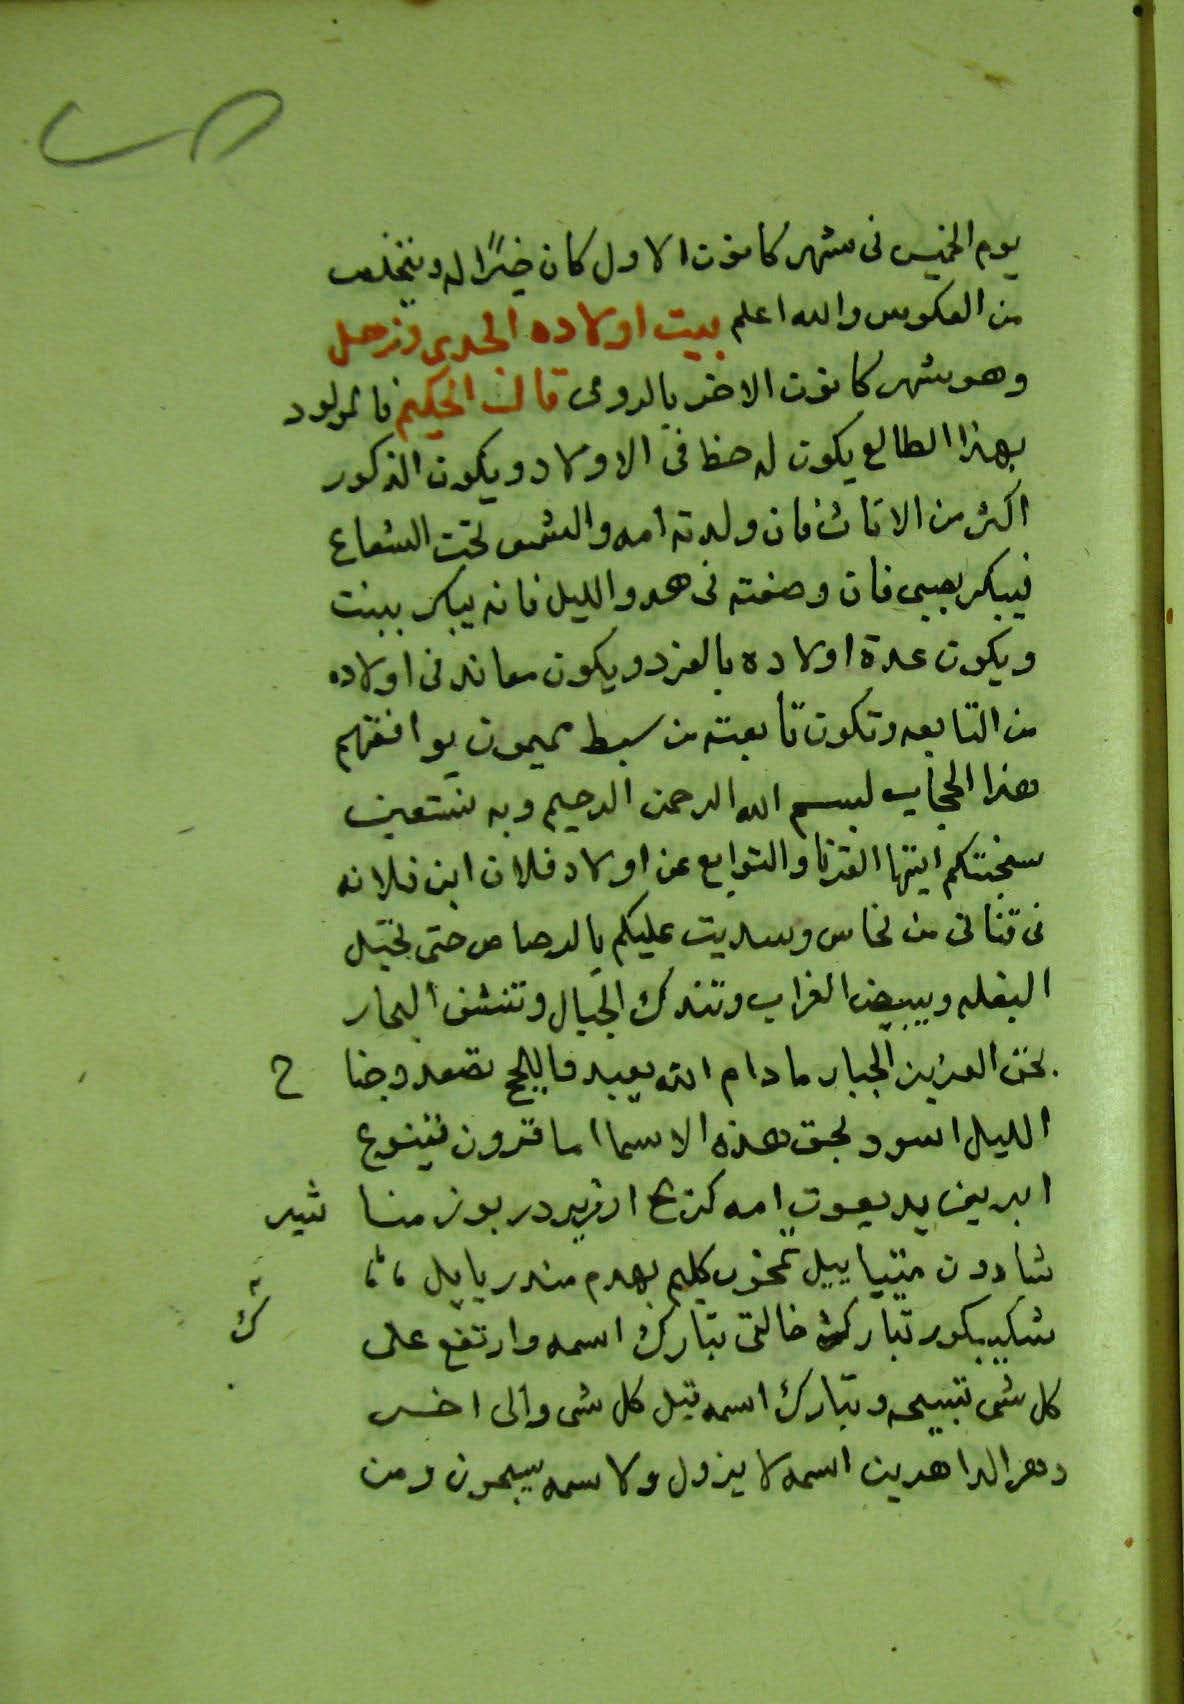 يوم الخميس فى شهر كانون الاول كان خيرًا له ويتخلص
من العكوس والله اعلم بيت اولاده الجدى وزحل
وهو شهر كانون الاخر بالرومى قال الحكيم فالمولود
بهذا الطالع يكون له حظ فى الاولاد ويكون الذكور
اكثر من الاناث فان ولدته امه والشمس تحت الشعاع
فيبكر بصبى فان وضعته فى هدو الليل فانه يبكر ببنت
ويكون عدة اولاده بالفرد ويكون معاند فى اولاده
من التابعه وتكون تابعته من سبط ميمون يوافقهم
هذا الحجاب بسم الله الرحمن الرحيم وبه نستعين
سجنتكم ايتها القرنا والتوابع عن اولاد فلان ابن فلانه
فى قنانى من نحاس وسديت عليكم بالرصاص حتى تحبل
البغله ويبيض الغراب وتندك الجبال وتنشف البحار
بحق العزيز الجبار ما دام الله يعبد تصعد وجنا ح
الليل اسود بحق هذه الاسما اما
ابر امه
شادون بهدم
تبارك خالق تبارك اسمه وارتفع على
كل شى تسبيحه وتبارك اسمه قبل كل شى والى اخر
دهر الداهرين اسمه لا يزول ولاسمه يسبحون ومن